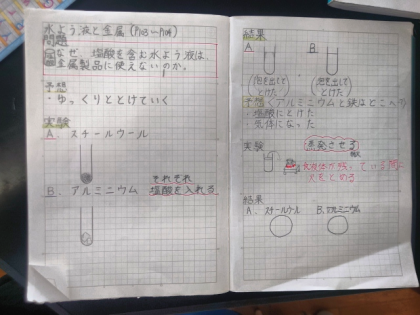 水よう液と金属(P103〜P104)
問題
なぜ、塩酸を含む水よう液は、
金属製品に使えないのか。
予想
・ゆっくりととけていく
実験
A. スチールウール
B. アルミニウム それぞれ
塩酸を入れる
結果
A. B.
(泡を出して とけた) (泡を出して とけた)
予想
・塩酸にとけた
・気体になった
実験 蒸発させる
結果
A. スチールウール B. アルミニウム